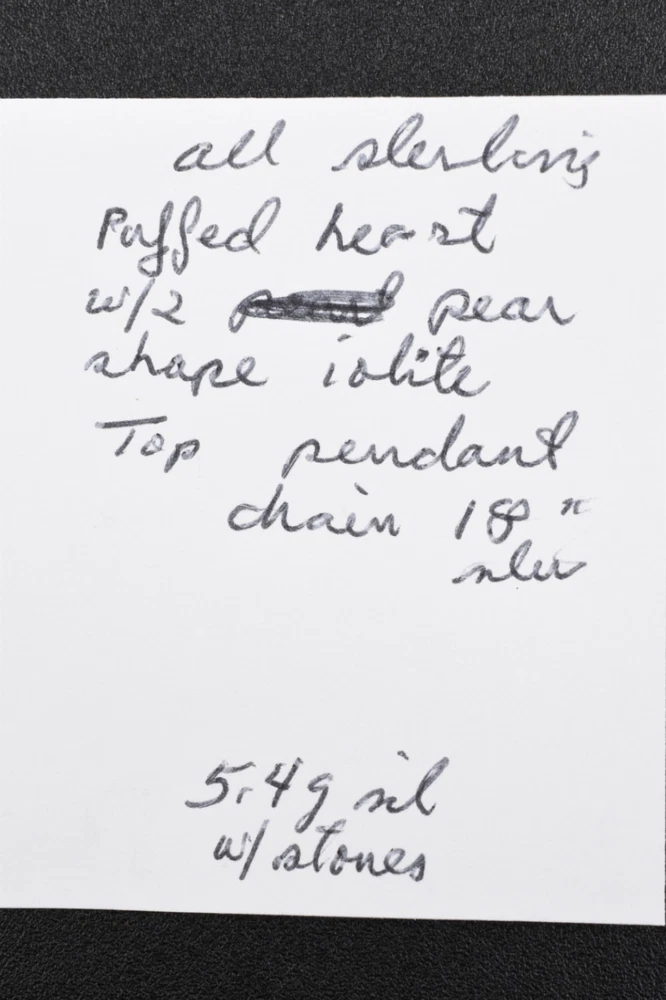 all sterling
Puffed heart
w/2 pear
shape iolite
Top pendant
chain 18"
ster
5.4g sil
w/ stones